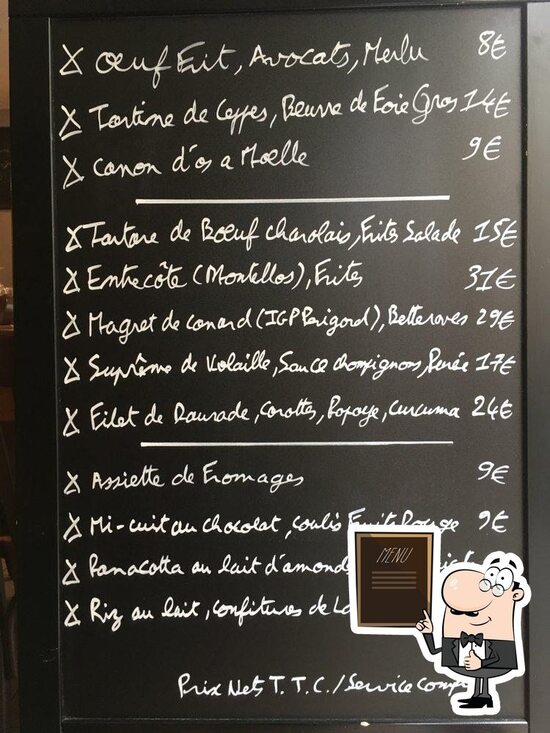 Œuf Frit, Avocats, Merlu 8€
Tartine de Ceppes, Beurre de Foie Gras 14€
Canon d'os a Moelle 9€
Tartare de Bœuf charolais, Frites Salade 15€
Entrecôte (Montellos), Frites 31€
Magret de canard (IGP Perigord), Betteraves 29€
Suprême de Volaille, Sauce champignons, Purée 17€
Filet de Daurade, carottes, Papaye, curcuma 24€
Assiette de Fromages 9€
Mi-cuit au chocolat, coulis Fruits Rouge 9€
Panacotta au lait d'amand
Riz au lait, confitures de
MENU
Prix Nets T.T.C. / Service